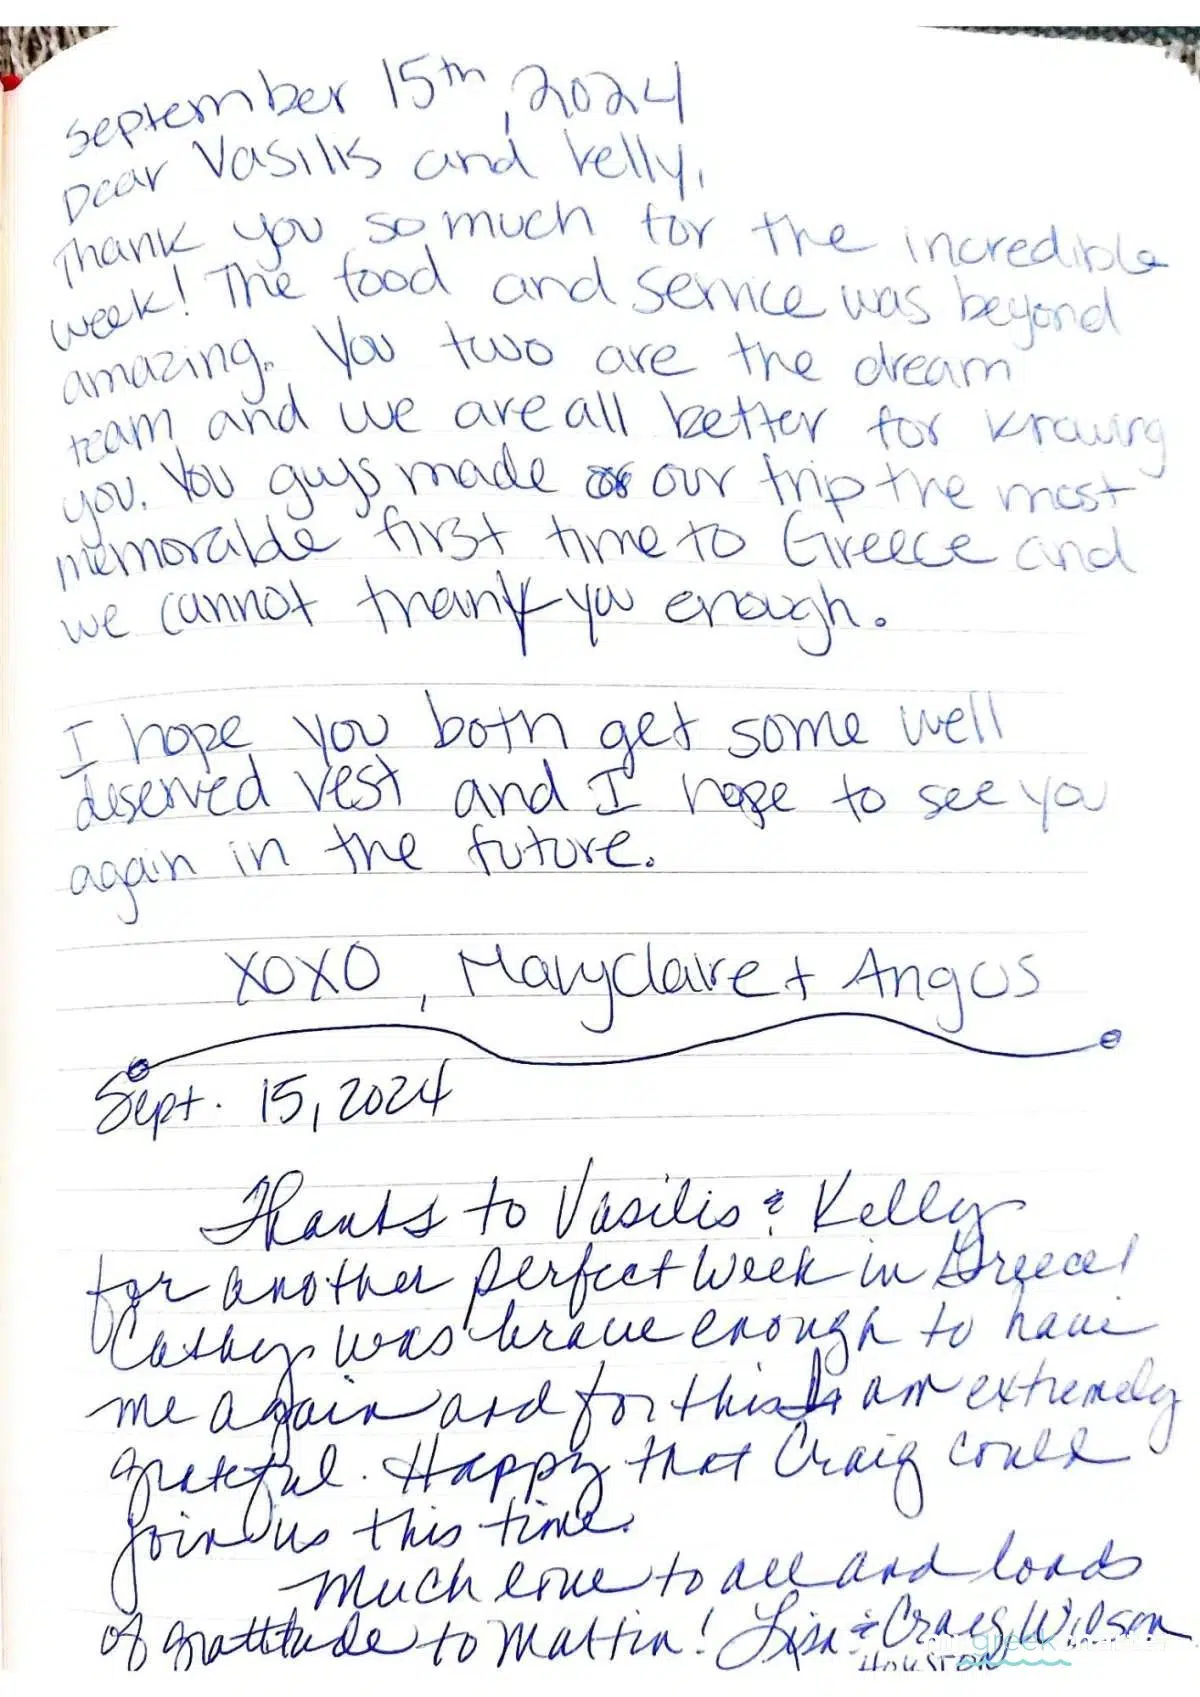 September 15th, 2024
Dear Vasilis and Kelly,
Thank you so much for the incredible
week! The food and service was beyond
amazing. You two are the dream
team and we are all better for knowing
you. You guys made our trip the most
memorable first time to Greece and
we cannot thank you enough.
I hope you both get some well
deserved rest and I hope to see you
again in the future.
XOXO, Maryclaire + Angus
Sept. 15, 2024
Thanks to Vasilis & Kelly
for another perfect week in Greece!
Cathy was brave enough to have
me again and for this I am extremely
grateful. Happy that Craig could
join us this time.
Much love to all and loads
of gratitude to Martin! Lisa & Craig Wilson
Houston
greek